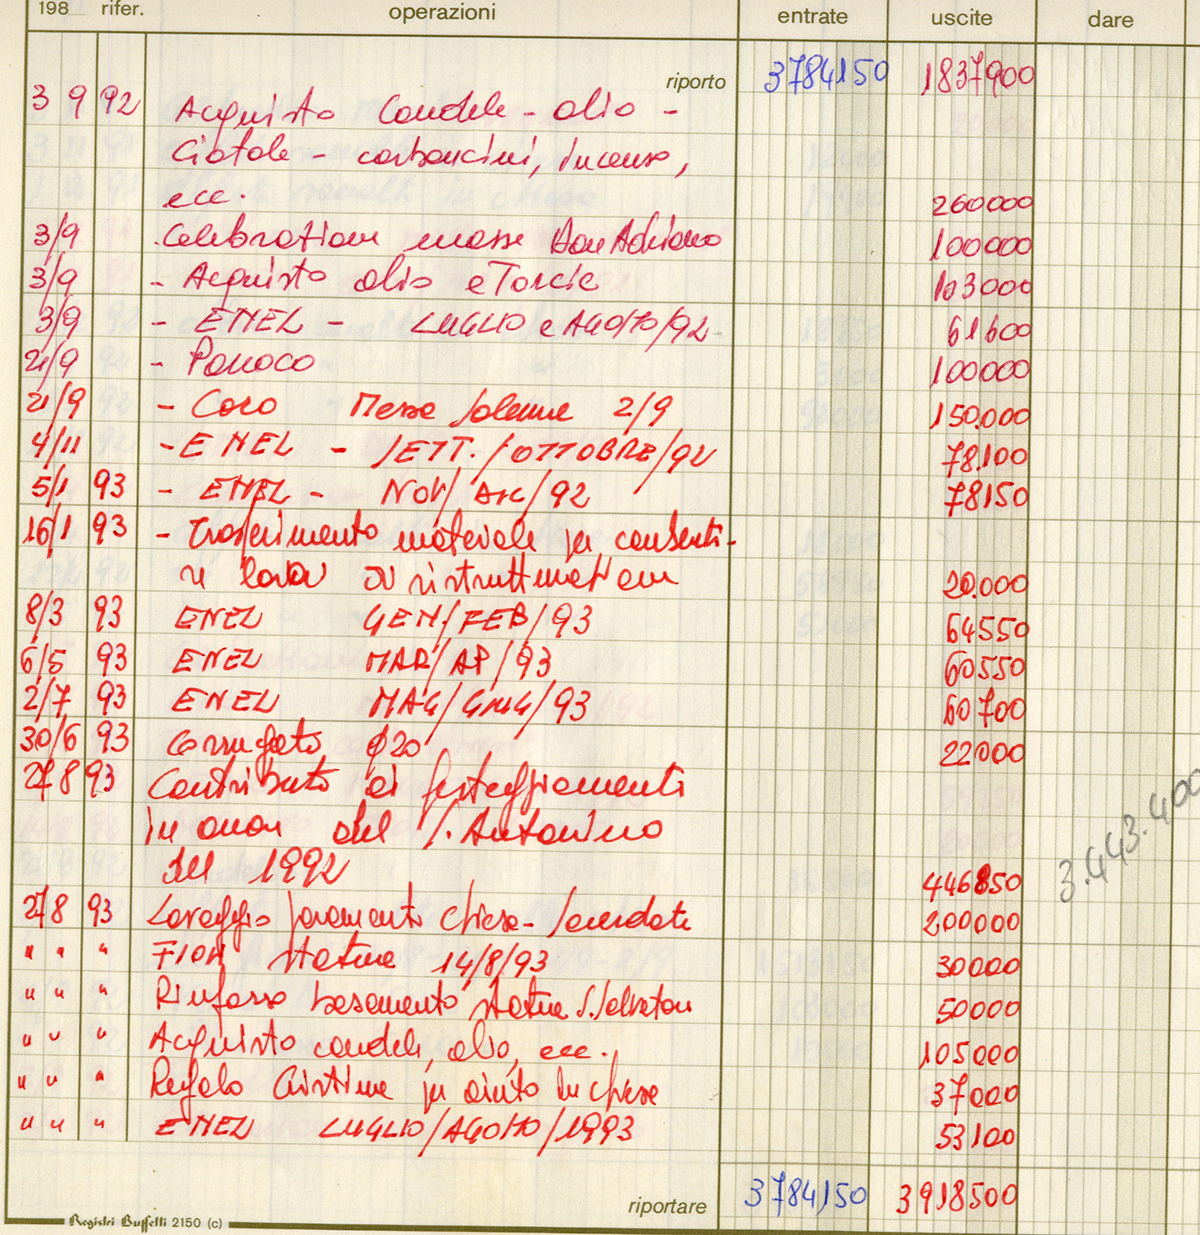 198 rifer. operazioni entrate uscite dare
riporto 3784150 1837900
3 9 92 Acquisto Candele - olio -
Ciotole - carboncini, incenso,
ecc. 260000
3/9 - Celebrazioni messe Don Adriano 100000
3/9 - Acquisto olio e Torcie 103000
3/9 - ENEL - LUGLIO e AGOSTO/92 - 61600
21/9 - Parroco 100000
21/9 - Coro Messa solenne 2/9 150.000
4/11 - ENEL - SETT./OTTOBRE/92 78.100
5/1 93 - ENEL - NOV/DIC/92 78150
16/1 93 - Trasferimento materiale per consenti-
re lavori di ristrutturazione 20.000
8/3 93 ENEL GEN/FEB/93 64550
6/5 93 ENEL MAR/AP/93 60550
2/7 93 ENEL MAG/GIUG/93 60700
30/6 93 Corrugato ø20 22000
27 8 93 Contributo ai festeggiamenti
in onore del S. Antonino
del 1992 446850
3.443.400
27 8 93 Lavaggio paramenti chiesa - sacerdote 200000
" " " FIORI statue 14/8/93 30000
" " " Rinforzo basamento statue S. Salvatore 50000
" " " Acquisto candele, olio, ecc. 105000
" " " Regalo Cristina per aiuto in chiesa 37000
" " " ENEL LUGLIO/AGOSTO/1993 53100
riportare 3784150 3918500
Registri Buffetti 2150 (c)